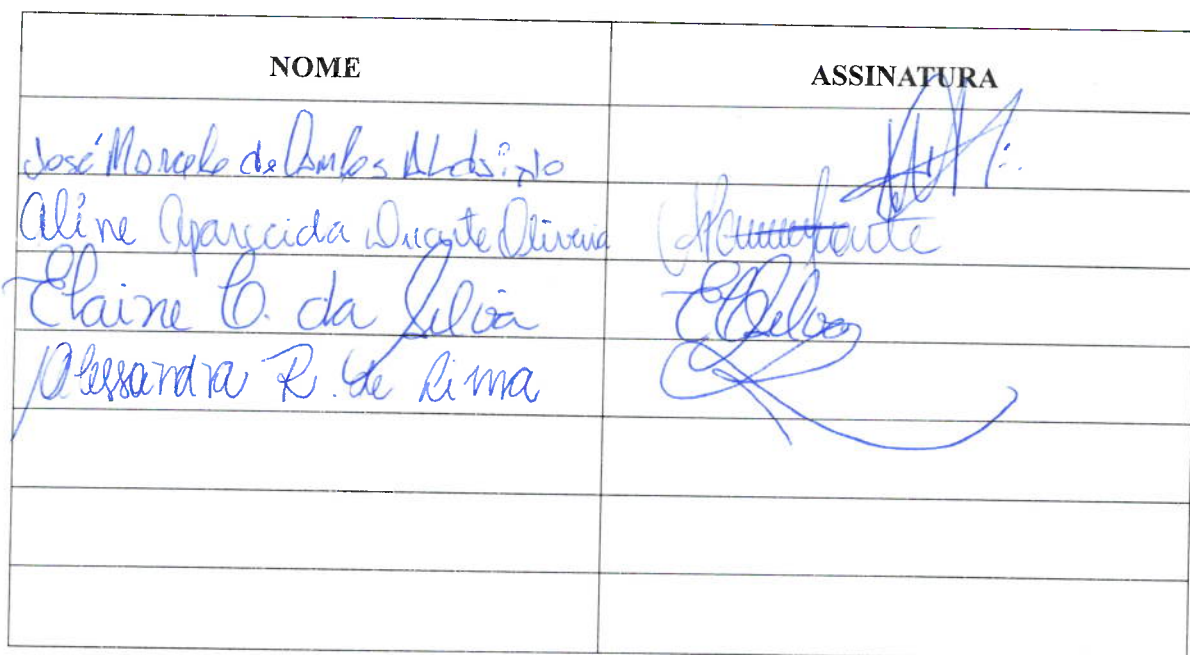 NOME ASSINATURA
José Marcelo de
Aline Aparecida Duarte Oliveira
Elaine C. da Silva ECSilva
Alessandra R. de Lima